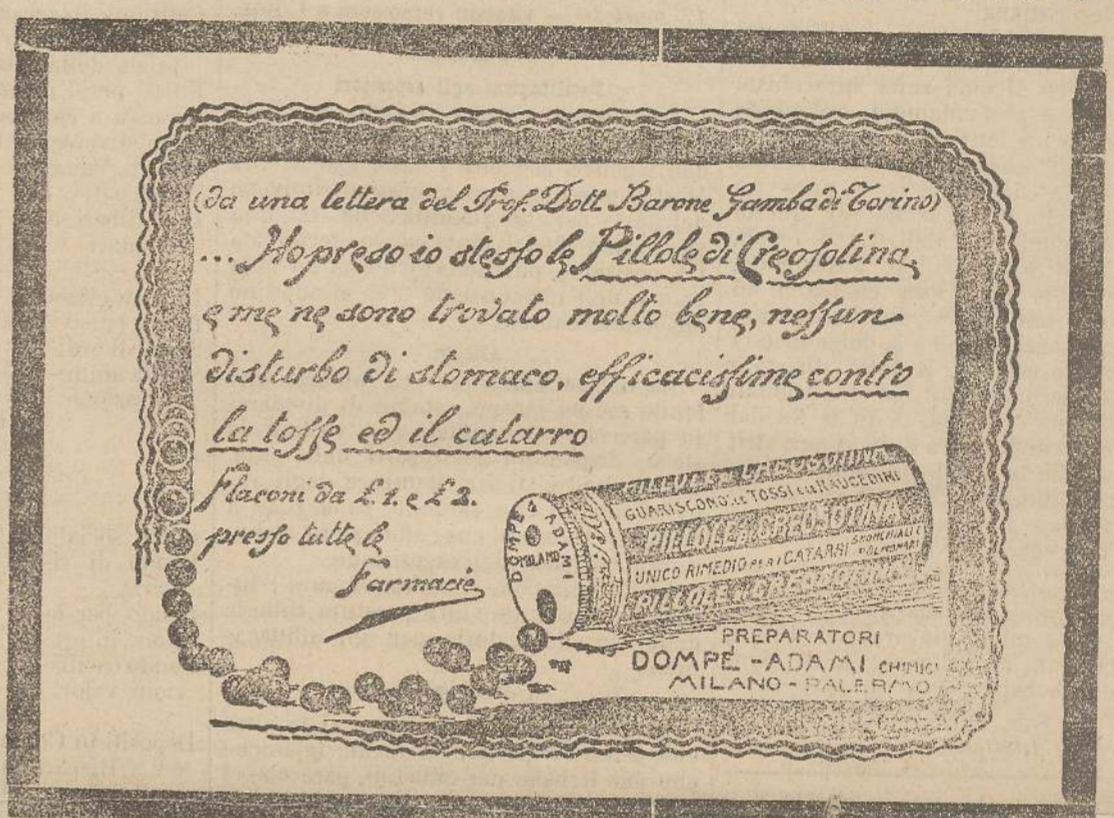 (da una lettera del Prof. Dott. Barone Gamba di Torino)
... Ho preso io stesso le Pillole di Creosotina,
e me ne sono trovato molto bene, nessun
disturbo di stomaco, efficacissime contro
la tosse ed il catarro
Flaconi da £ 1. e £ 2.
presso tutte le
Farmacie
DOMPÉ ADAMI
MILANO
PILLOLE DI CREOSOTINA
GUARISCONO LE TOSSI E LE RAUCEDINI
PILLOLE DI CREOSOTINA
UNICO RIMEDIO PER I CATARRI BRONCHIALI E POLMONARI
PILLOLE DI CREOSOTINA
PREPARATORI
DOMPÉ - ADAMI CHIMICI
MILANO - PALERMO